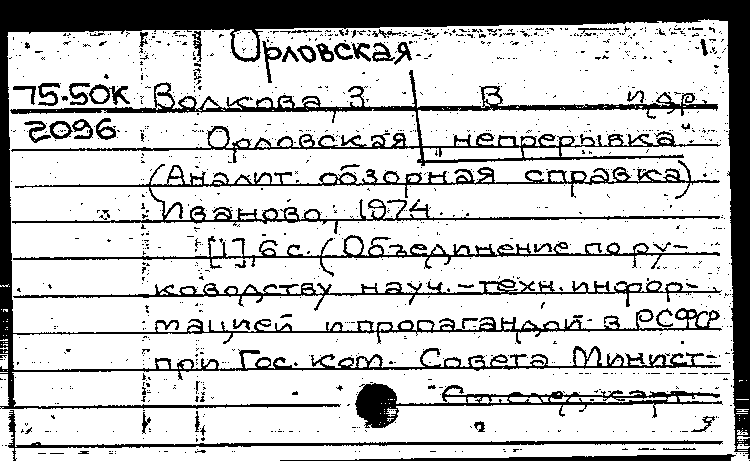 Орловская 1.
75.50К Волкова, З. В. и др.
2096 Орловская „непрерывка"
(Аналит. обзорная справка).
Иваново, 1974.
[1], 6 с. (Объединение по ру-
ководству науч.-техн. инфор-
мацией и пропагандой в РСФСР
при Гос. ком. Совета Минист-
См. след. карт.